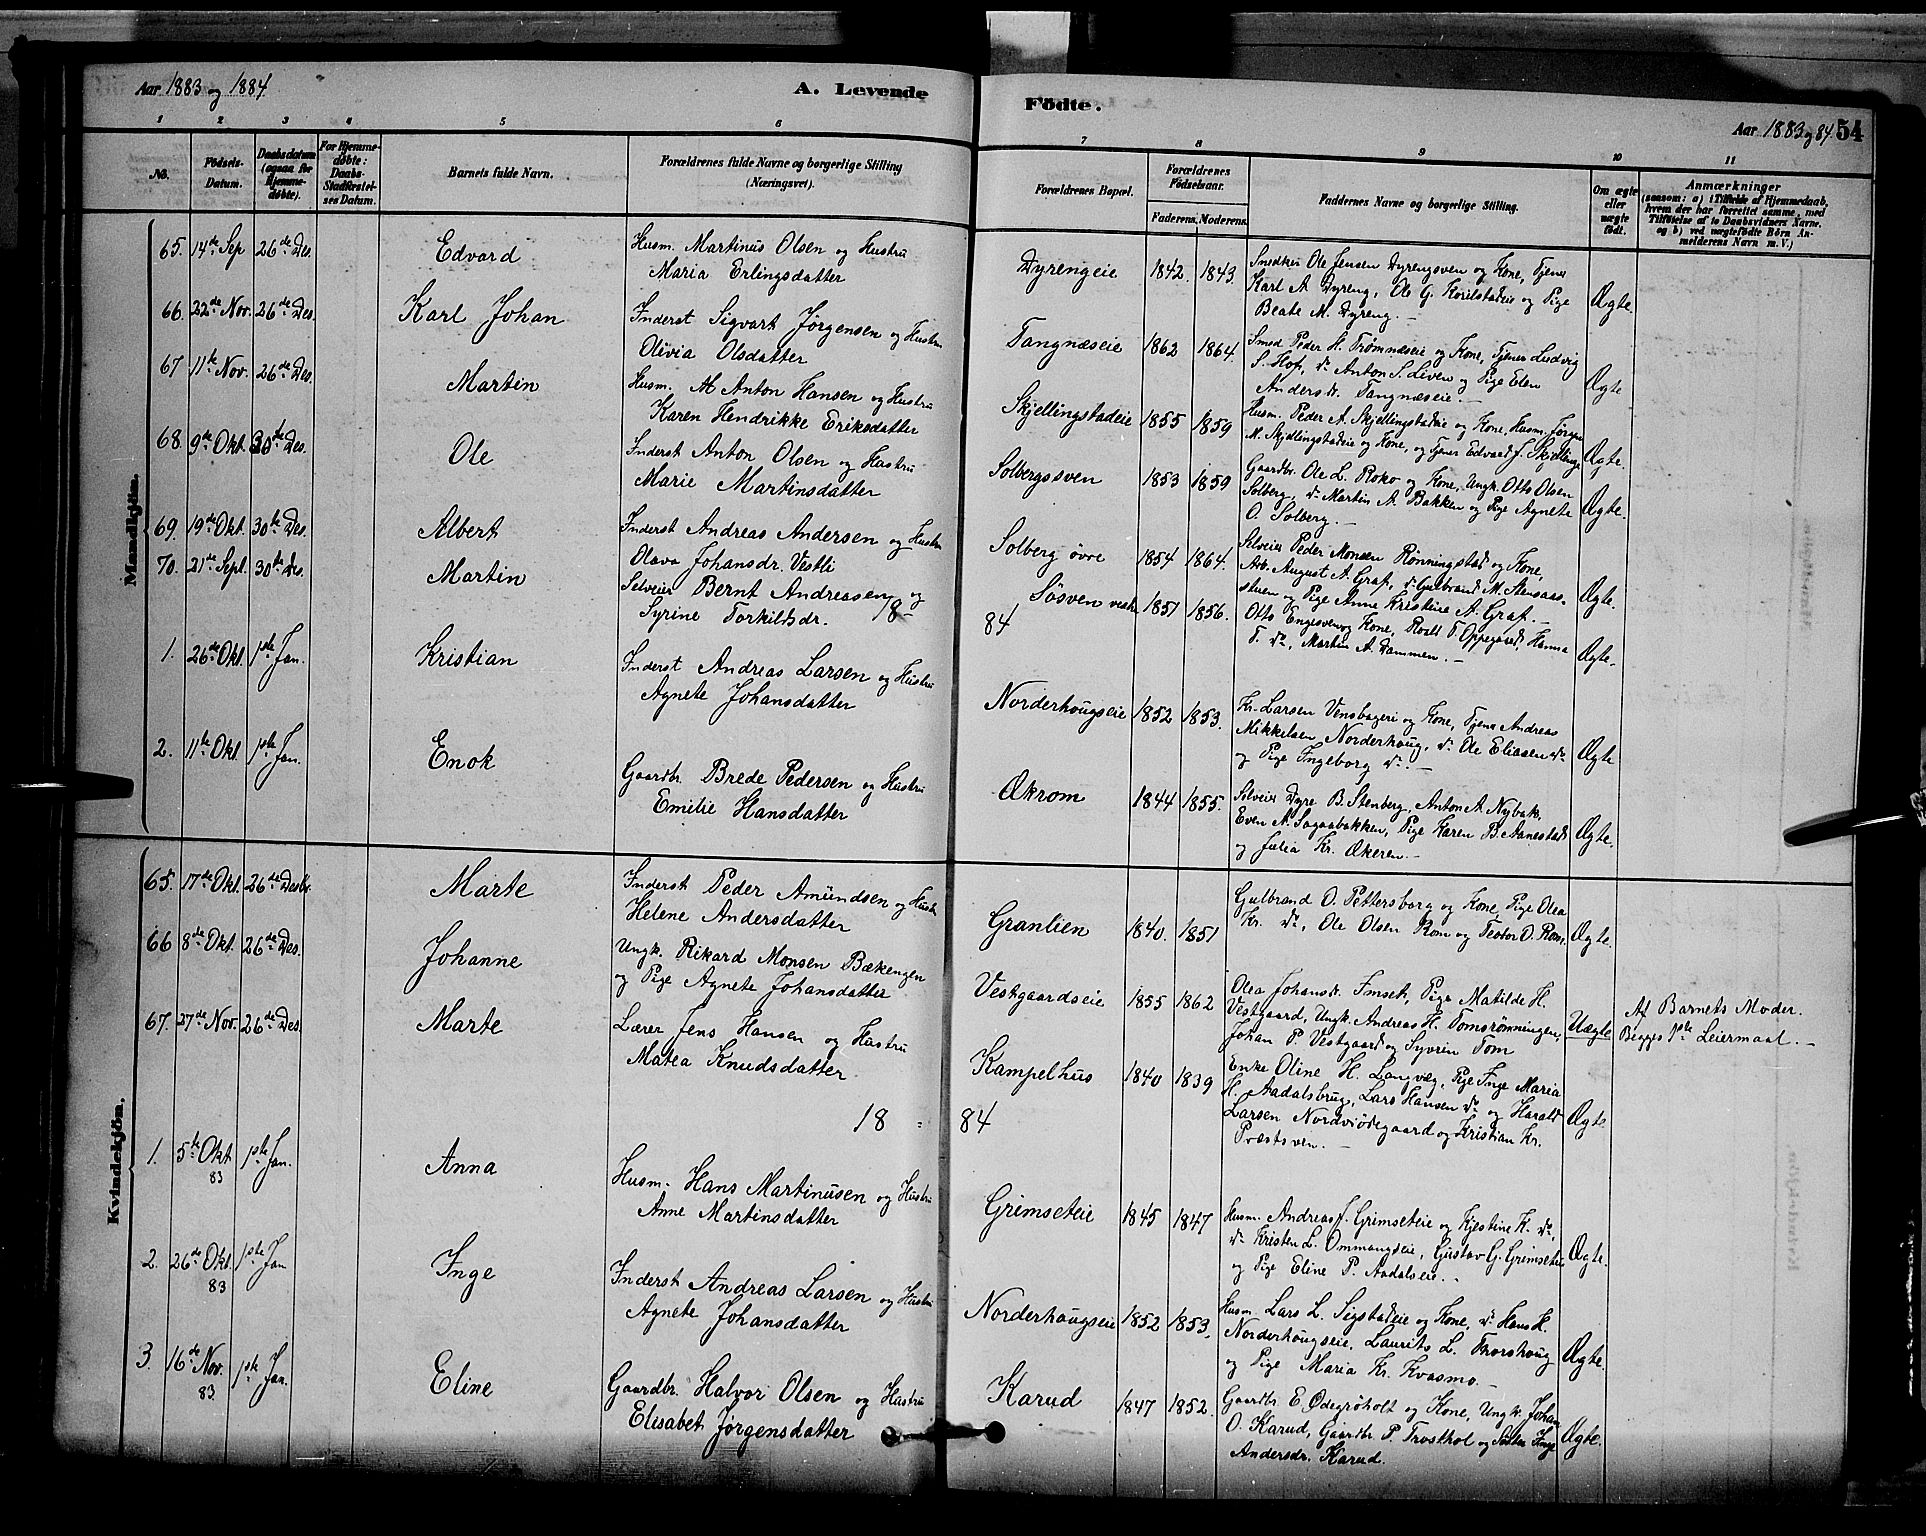 Aar 1883 og 1884
A. Levende
Födte.
Aar 1883 og 84
54
1 2 3 4 5 6 7 8 9 10 11
No.
Födsels-
Datum.
Daabsdatum
(ogsaa for
Hjemme-
døbte).
For Hjemme-
døbte:
Daabs-
Stadfæstel-
ses Datum.
Barnets fulde Navn.
Forældrenes fulde Navne og borgerlige Stilling
(Næringsvei).
Forældrenes Bopæl.
Forældrenes
Födselsaar.
Faderens. Moderens.
Faddernes Navne og borgerlige Stilling.
Om ægte
eller
uægte
födt.
Anmærkninger
(saasom: a) i Tilfælde af Hjemmedaab,
hvem der har forrettet samme, med
Tilföielse af to Daabsvidners Navne,
og b) ved uægtefödte Börn An-
melderens Navn m. V.)
Mandkjön.
65. 14de Sep 26de Des. Edvard
Husm. Martinus Olsen og Hustru
Maria Erlingsdatter
Dyrengeie 1842. 1843.
Snedker Ole Jensen Dyrengsven og Kone, Tjener
Karl A. Dyreng, Ole G. og Pige
Beate M. Dyreng. —
Ægte.
66. 22de Nov. 26de Des. Karl Johan
Inderst Sigvart Jørgensen og Hustru
Olivia Olsdatter
Tangnæseie 1862 1864.
Smed Peder H. Trømnæseie og Kone, Tjener Ludvig
S. Hof, do. Anton S. Liven og Pige Elen
Andersdr. Tangnæseie. —
Ægte
67 11te Nov. 26de Des. Martin
Husm. M Anton Hansen og Hustru
Karen Hendrikke Eriksdatter
Skjellingstadeie 1855 1859
Husm. Peder A. Skjellingstadeie og Kone, Husm. Jørgen
M. Skjellingstadeie og Kone, og Tjener Edvard J. Skjellings
Ægte.
68. 9de Okt. 30te Des. Ole
Inderst Anton Olsen og Hustru
Marie Martinsdatter
Solbergsven 1853 1859
Gaardbr. Ole L. Roko og Kone, Ungk. Otto Olsen
Solberg, do. Martin A. Bakken og Pige Agnete
O. Solberg. —
Ægte.
69. 19de Okt. 30te Des. Albert
Inderst Andreas Andersen og Hustru
Olava Johansdr. Vestli
Solberg övre 1854 1864.
Selveier Peder Monsen Rönningstad og Kone,
Arb. August A. Graf, do. Gulbrand M. Stensaas-
stuen og Pige Anne Kristine A. Graf. —
Ægte.
70. 21de Sept. 30te Des. Martin
Selveier Bernt Andreasen og
Syrine Torkildsdr.
Sösven vestre 1851 1856.
Otto Engesven og Kone, Roald T. Oppegaard, Hanna
T. do., Martin A. Dammen. —
Ægte.
18 84
1. 26de Okt. 1ste Jan. Kristian
Inderst Andreas Larsen og Hustru
Agnete Johansdatter
Norderhougseie 1852 1853.
Kr. Larsen og Kone, Tjener Andreas
Mikkelsen Norderhoug, do. Ole Eliasen do.
og Pige Ingeborg do. —
Ægte
2. 11te Okt. 1ste Jan. Enok
Gaardbr. Brede Pedersen og Hustru
Emilie Hansdatter
Økrom 1844 1855.
Selveier Dyre B. Stenberg, Anton A. Nybak,
Even N. Sagaabakken, Pige Karen B. Aanestad
og Julia Kr. Økeren. —
Ægte.
Kvindekjön.
65. 17de Okt. 26de Desbr. Marte
Inderst Peder Amundsen og Hustr.
Helene Andersdatter
Granlien 1840. 1851
Gulbrand O. Pettersborg og Kone, Pige Olea
Kr. do., Ole Olsen Rom og Teodor O. Rom.
Ægte.
66 8de Okt. 26de Des. Johanne
Ungk. Rikard Monsen Bækengen
og Pige Agnete Johansdatter
Vestgaardseie 1855 1862
Olea Johansdr. Imset, Pige Matilde H.
Vestgaard, Ungk. Andreas H. Tomsrønningen,
Johan P. Vestgaard og Syvrin Tom
Uægte
Af Barnets Moder.
Begges 1ste Leiermaal. —
67. 27de Nov. 26de Des. Marte
Lærer Jens Hansen og Hustru
Matea Knudsdatter
Kampelhus 1840 1839
Enke Oline H. Langvæg, Pige Inge Maria
H. Aadalsbrug, Lars Hansen do. og Harald
Larsen Nordviödegaard og Kristian Kr.
Præstsven. —
Ægte
18 84
1. 5te Okt. 83 1ste Jan. Anna
Husm. Hans Martinusen og Hustru
Anne Martinsdatter
Grimseteie 1845 1847
Husm. Andreas J. Grimseteie og Kjestine K. do.,
do. Kristen L. Ommangseie, Gustav G. Grimseteie
og Pige Eline P. Aadalseie. —
Ægte.
2. 26de Okt. 83 1ste Jan Inge
Inderst Andreas Larsen og Hustru
Agnete Johansdatter
Norderhougseie 1852 1853.
Husm. Lars L. Sigstadeie og Kone, do. Hans H.
Norderhougseie, Laurits L. Thorshoug
og Pige Maria Kr. Kvasmo. —
Ægte.
3. 16de Nov. 83 1ste Jan. Eline
Gaardbr. Halvor Olsen og Hustru
Elisabet Jørgensdatter
Karud 1847 1852.
Gaardbr E. Ødegröholt og Kone, Ungk. Johan
O. Karud, Gaardbr. P. Trosthol og Inge
Andersdr. Karud.
Ægte.